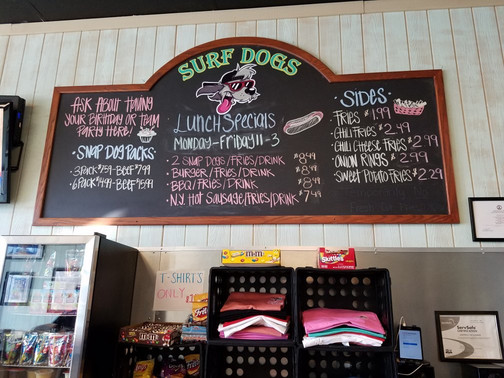 SURF DOGS
ASK ABOUT HAVING
YOUR BIRTHDAY OR TEAM
PARTY HERE!
• SNAP DOG PACKS •
3 PACK $7.59 - BEEF $7.99
6 PACK $14.99 - BEEF $15.99
LUNCH SPECIALS
MONDAY - FRIDAY 11-3
• 2 SNAP DOGS/FRIES/DRINK $8.49
• BURGER/FRIES/DRINK $8.49
• BBQ/FRIES/DRINK $8.49
• N.Y. HOT SAUSAGE/FRIES/DRINK $7.49
SIDES
FRIES $1.99
CHILI FRIES $2.49
CHILI CHEESE FRIES $2.99
ONION RINGS $2.99
SWEET POTATO FRIES $2.29
T-SHIRTS
ONLY
m&m's
Skittles
ServSafe